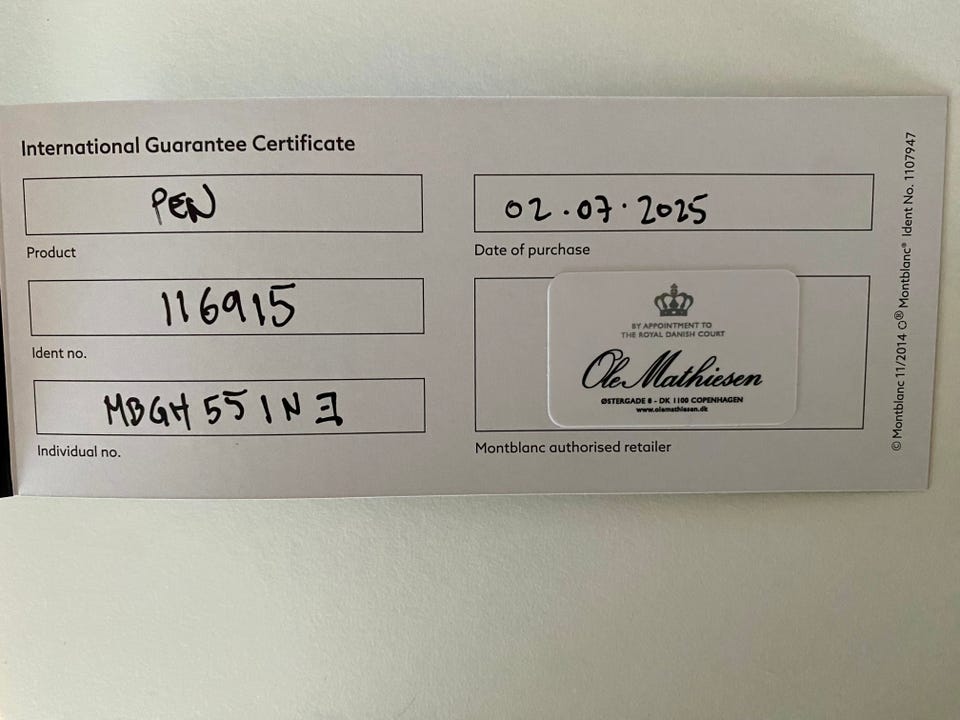 International Guarantee Certificate
PEN
Product
116915
Ident no.
MBGH551N3
Individual no.
02.07.2025
Date of purchase
BY APPOINTMENT TO
THE ROYAL DANISH COURT
Ole Mathiesen
ØSTERGADE 8 - DK 1100 COPENHAGEN
www.olemathiesen.dk
Montblanc authorised retailer
© Montblanc 11/2014 ® Montblanc® Ident No. 1107947